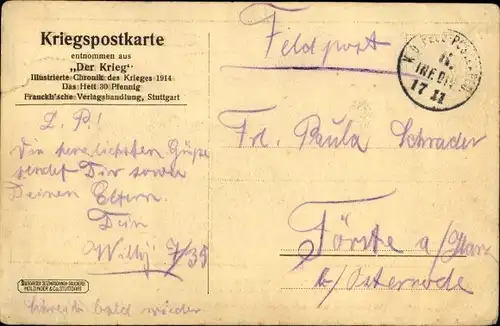 Kriegspostkarte
entnommen aus
„Der Krieg“
Illustrierte Chronik des Krieges 1914
Das Heft 30 Pfennig
Franckh'sche Verlagshandlung, Stuttgart
Feldpost
17 11
L. P.!
Die herzlichsten Grüße
sendet Dir sowie
Deinen Eltern
Dein
Willy
Frl. Paula Schrader
Förste a/Harz
b/Osterode
HOLZINGER & Co. STUTTGART
Schreib bald wieder